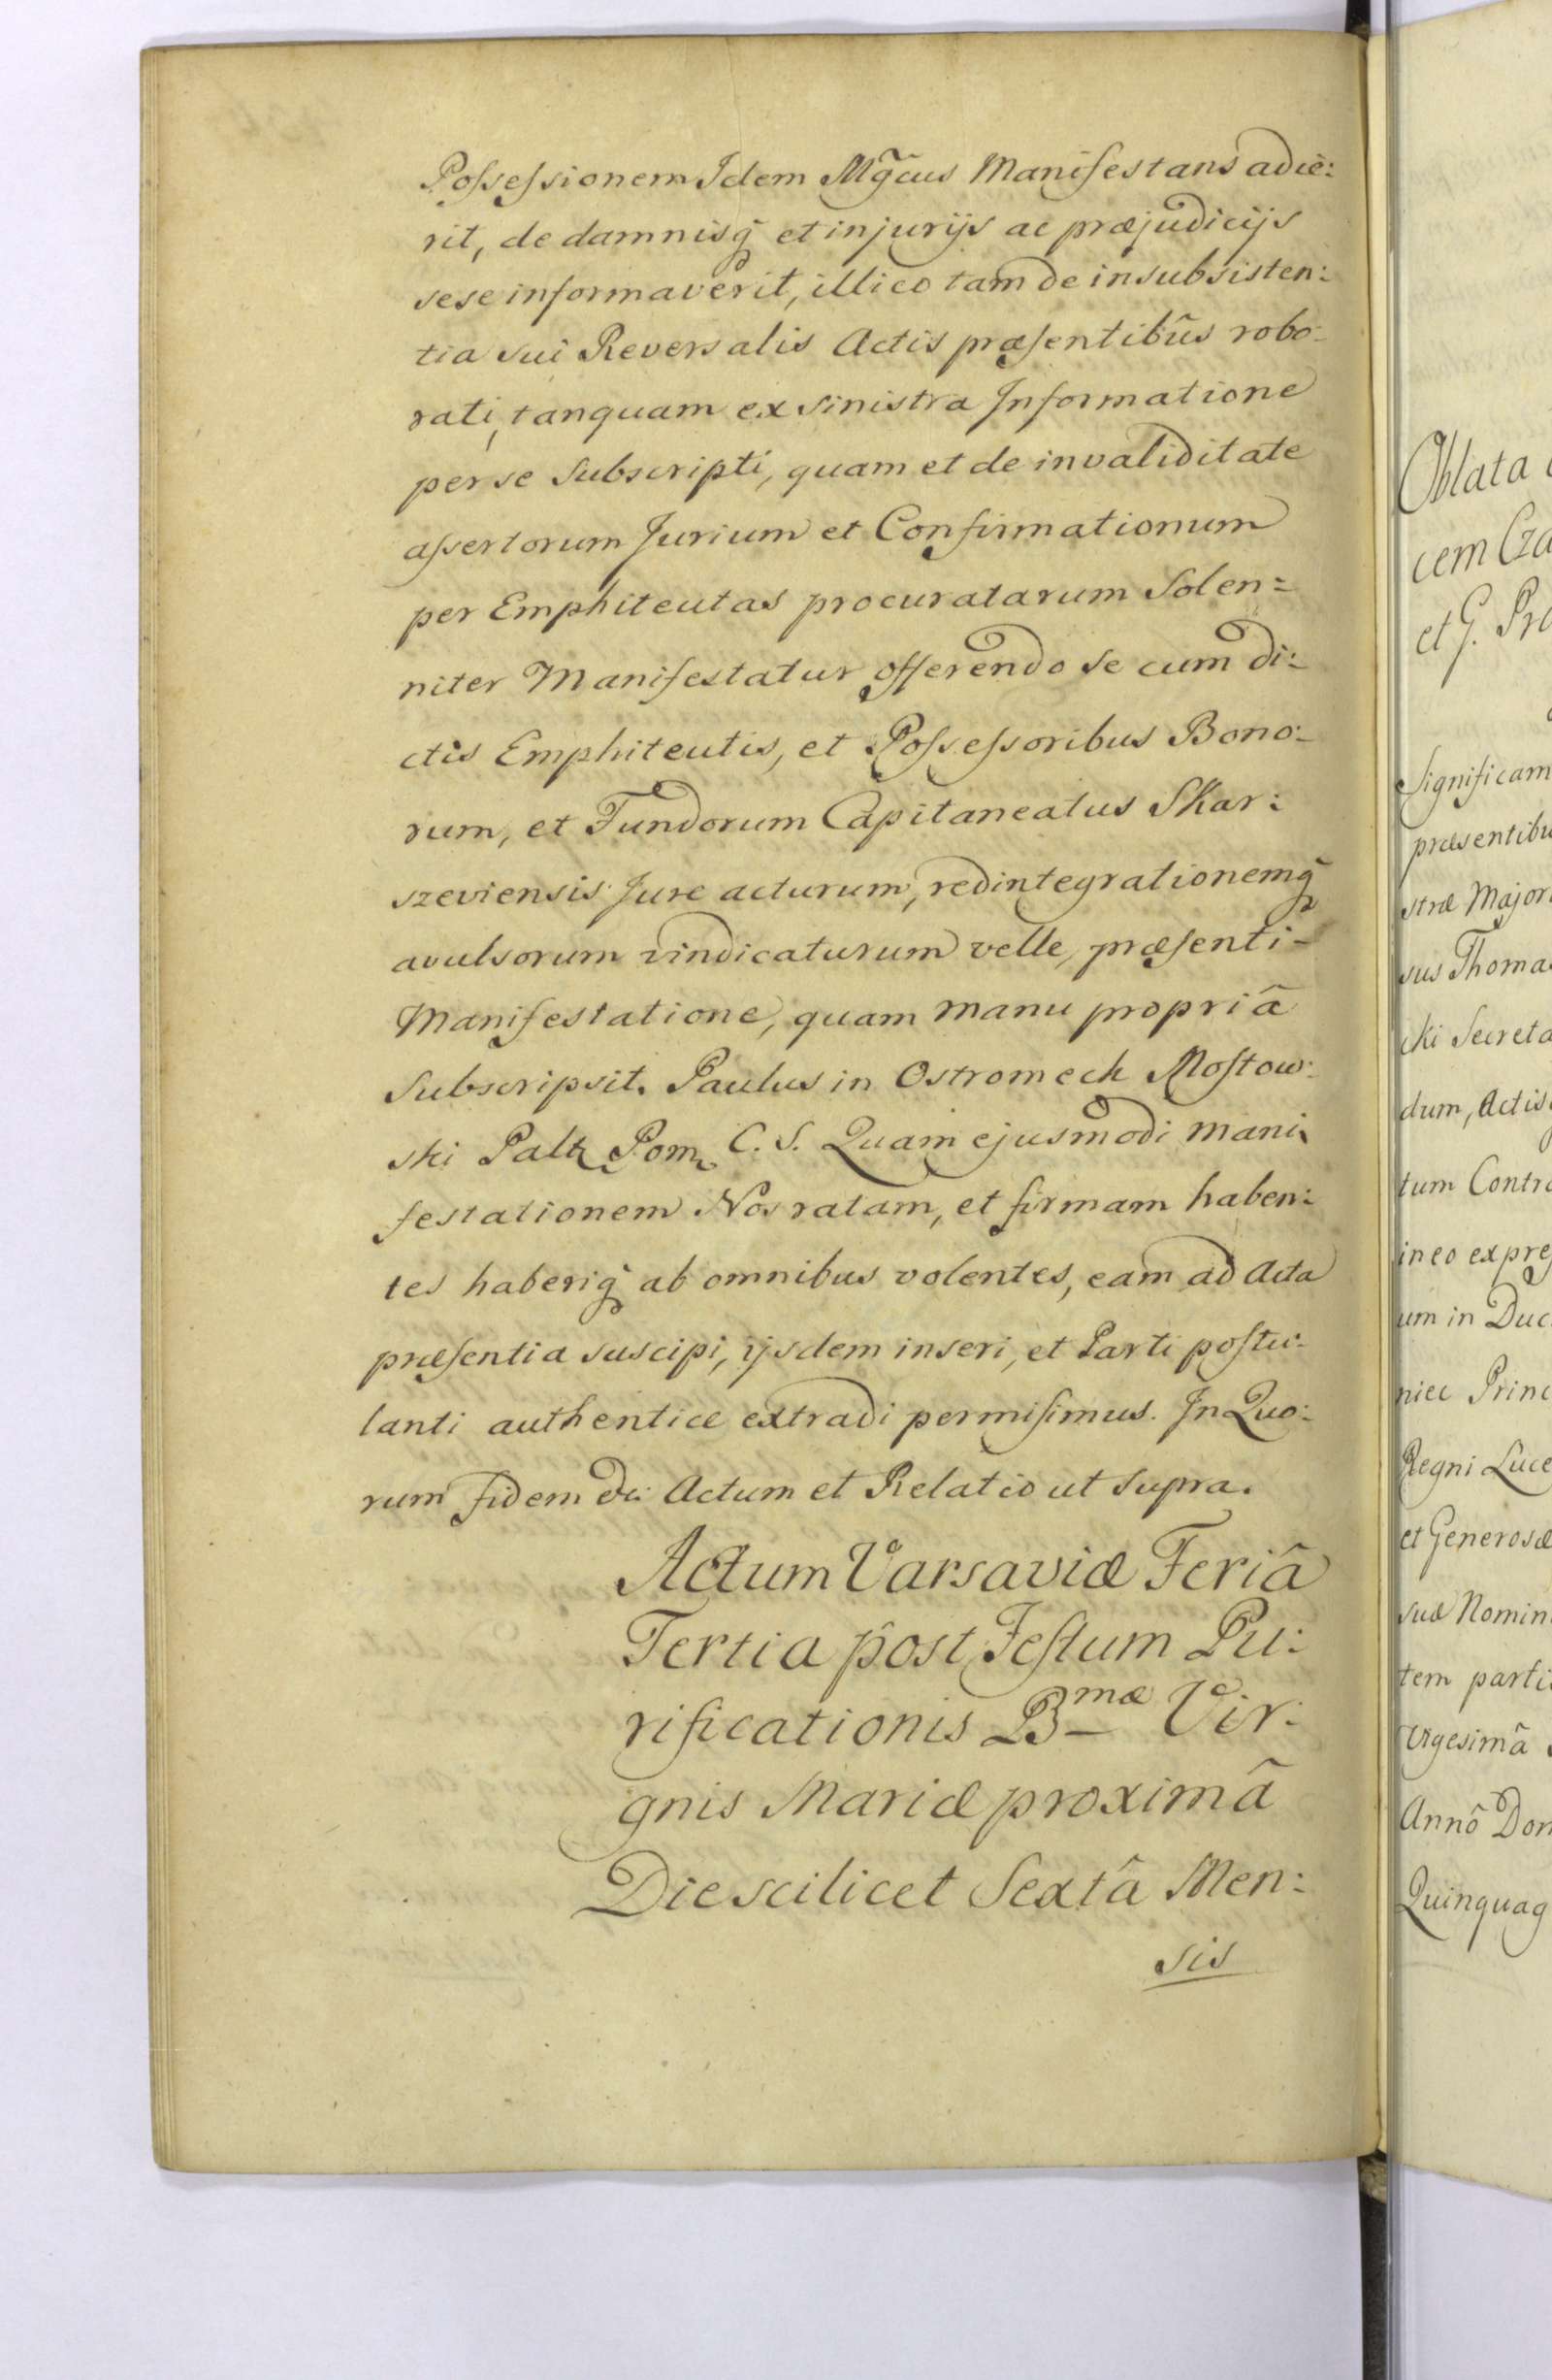 Possessionem Idem Mg̃cus Manifestans adie:
rit, de damnisq̃ et injurijs ac præjudicijs
sese informaverit, illico tam de insubsisten:
tia sui Reversalis Actis præsentibûs robo-
rati, tanquam ex sinistra Informatione
per se Subscripti, quam et de invaliditate
assertorum Jurium et Confirmationum
per Emphiteutas procuratarum Solen=
niter Manifestatur offerendo se cum di:
ctis Emphiteutis, et Possessoribus Bono:
rum, et Fundorum Capitaneatus Skar:
szeviensis Jure acturum, redintegrationemq̃
avulsorum vindicaturum velle, præsenti-
Manifestatione, quam manu propriâ
Subscripsit. Paulus in Ostromeck Mostow:
ski Paltz Pom. C. S. Quam ejusmodi Mani,
festationem Nos ratam, et firmam haben:
tes haberiq̃ ab omnibus volentes, eam ad Acta
præsentia suscipi, ijsdem inseri, et Parti postu:
lanti authenticè extradi permisimus. In Quo:
rum fidem &c: Actum et Relatio ut Supra.
Actum Varsaviæ Feriâ
Tertia post Festum Pu:
rificationis Bmæ Vir:
gnis Mariæ proximâ
Die scilicet Sextâ Men:
sis
Oblata
cem Cza
et G. Pro
Significam
præsentibu
stræ Major
sus Thoma
cki Secreta
dum, Actis
tum Contra
in eo expres
um in Duc
niec Princ
Regni Luce
et Generosæ
suæ Nomin
tem parti
Vigesimâ
Annô Dom
Quinquag